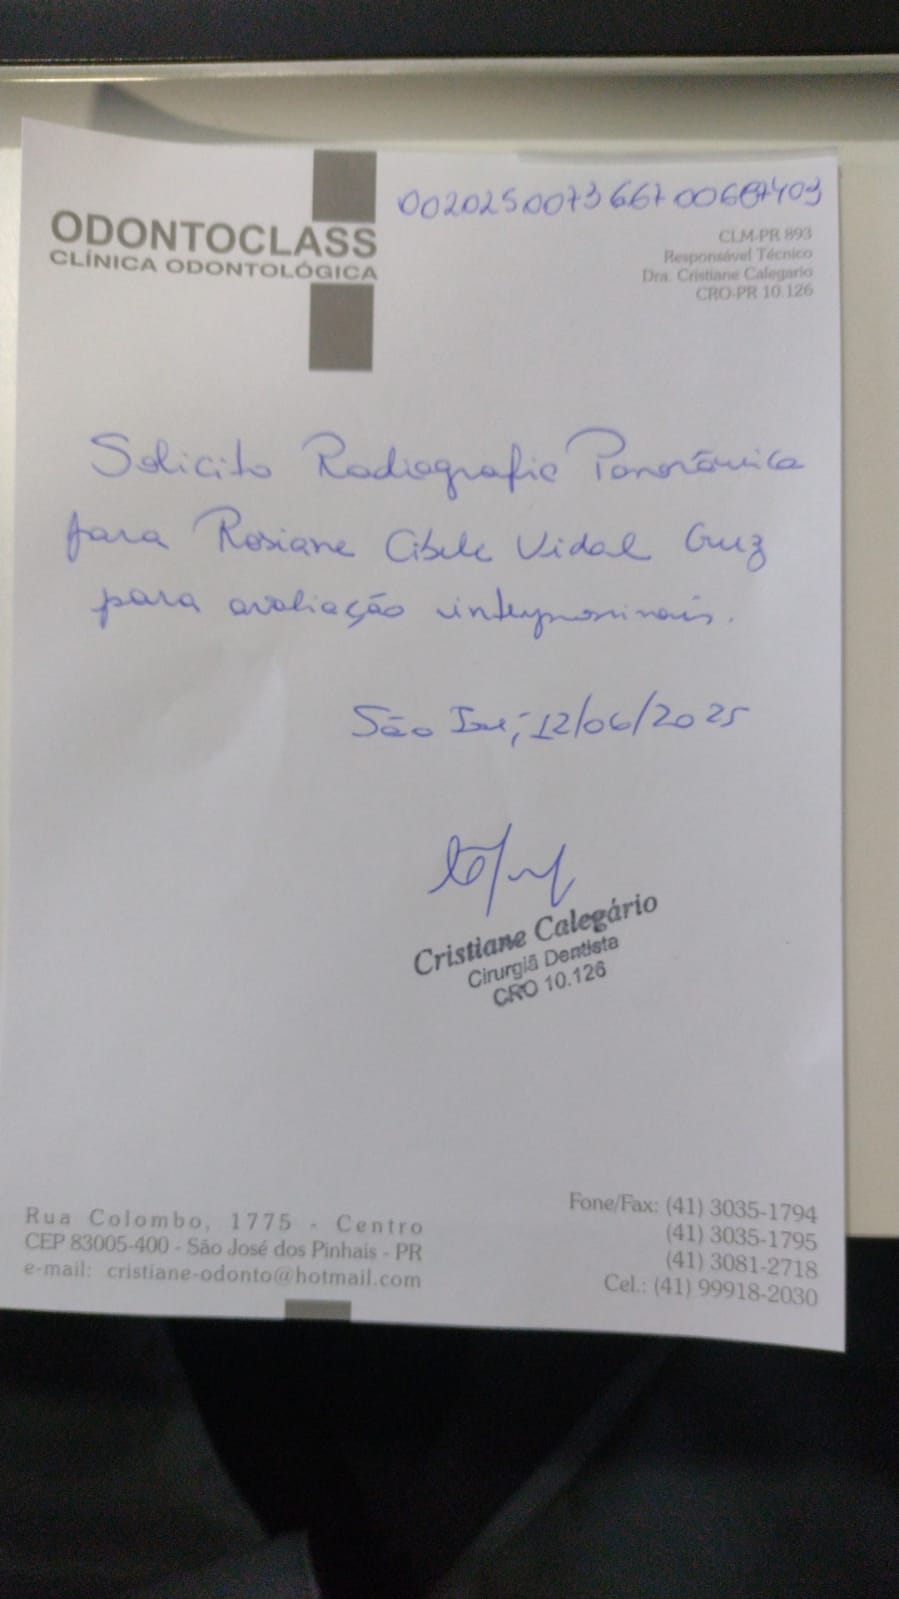 002025007366700687409
ODONTOCLASS
CLÍNICA ODONTOLÓGICA
CLM-PR 893
Responsável Técnico
Dra. Cristiane Calegario
CRO-PR 10.126
Solicito Radiografia Panorâmica
para Rosiane Cibele Vidal Cruz
para avaliação interproximais.
São José, 12/06/2025
Cristiane Calegário
Cirurgiã Dentista
CRO 10.126
Rua Colombo, 1775 - Centro
CEP 83005-400 - São José dos Pinhais - PR
e-mail: cristiane-odonto@hotmail.com
Fone/Fax: (41) 3035-1794
(41) 3035-1795
(41) 3081-2718
Cel.: (41) 99918-2030